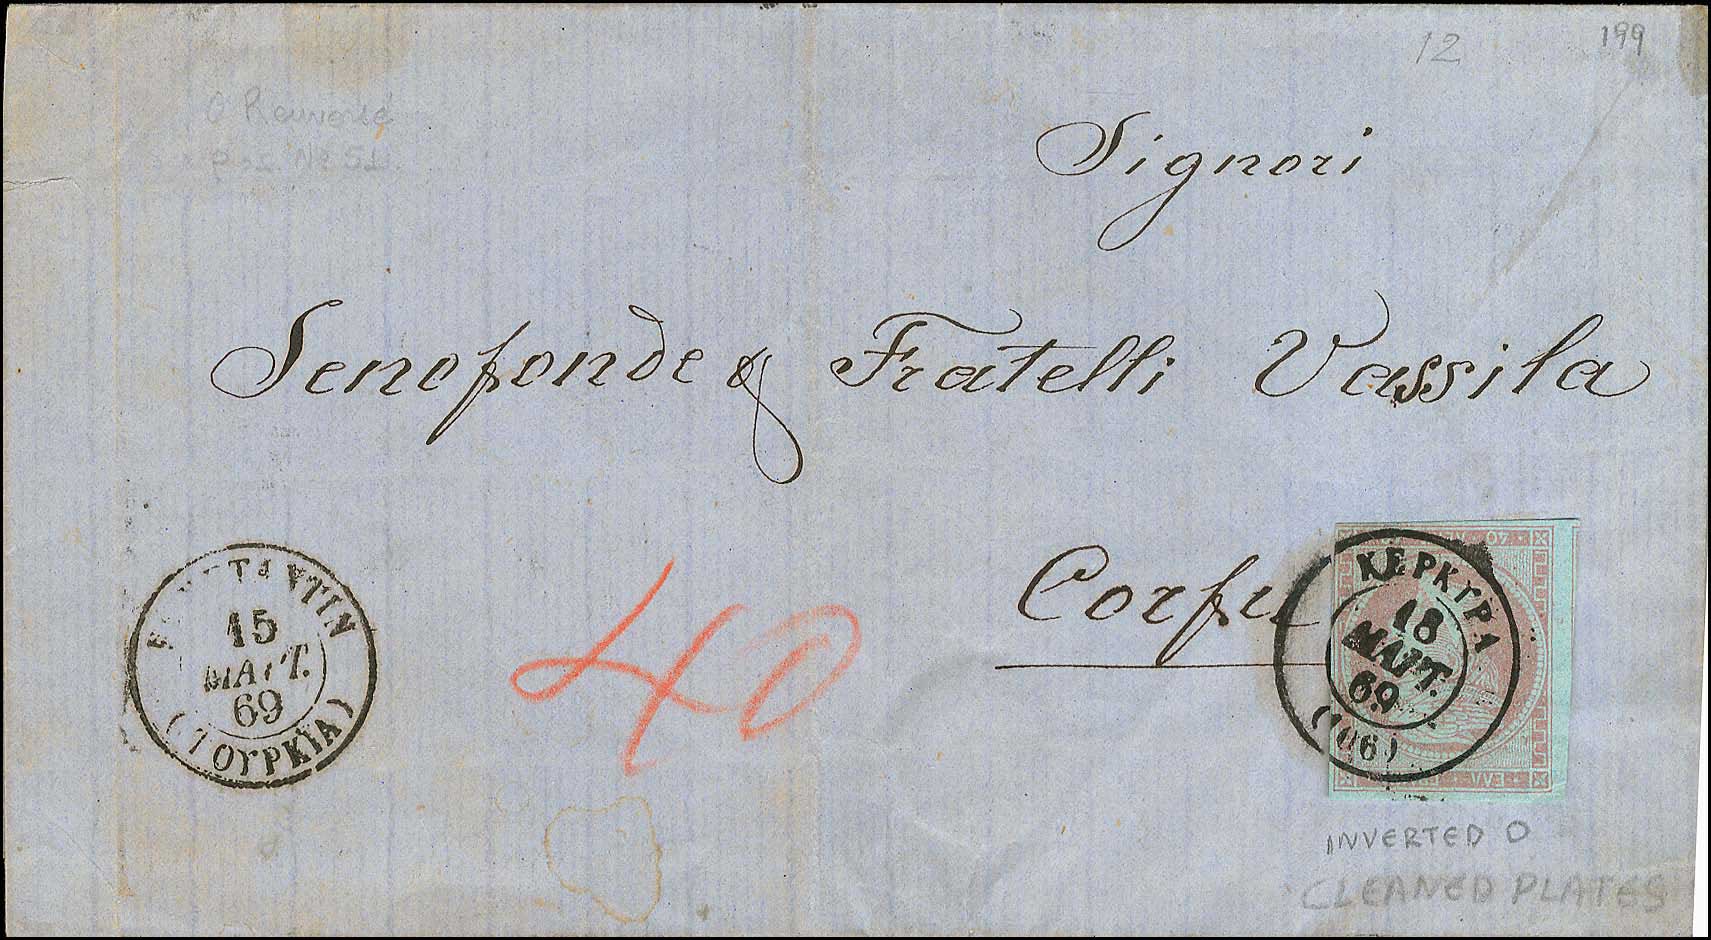 12
199
pos. Nº 51
Signori
Senofonde & Fratelli Vassila
Corfu
40
15
ΜΑΡΤ.
69
(ΤΟΥΡΚΙΑ)
40
ΚΕΡΚΥΡΑ
18
ΜΑΡΤ.
69
(106)
ΕΛΛ
INVERTED O
CLEANED PLATES